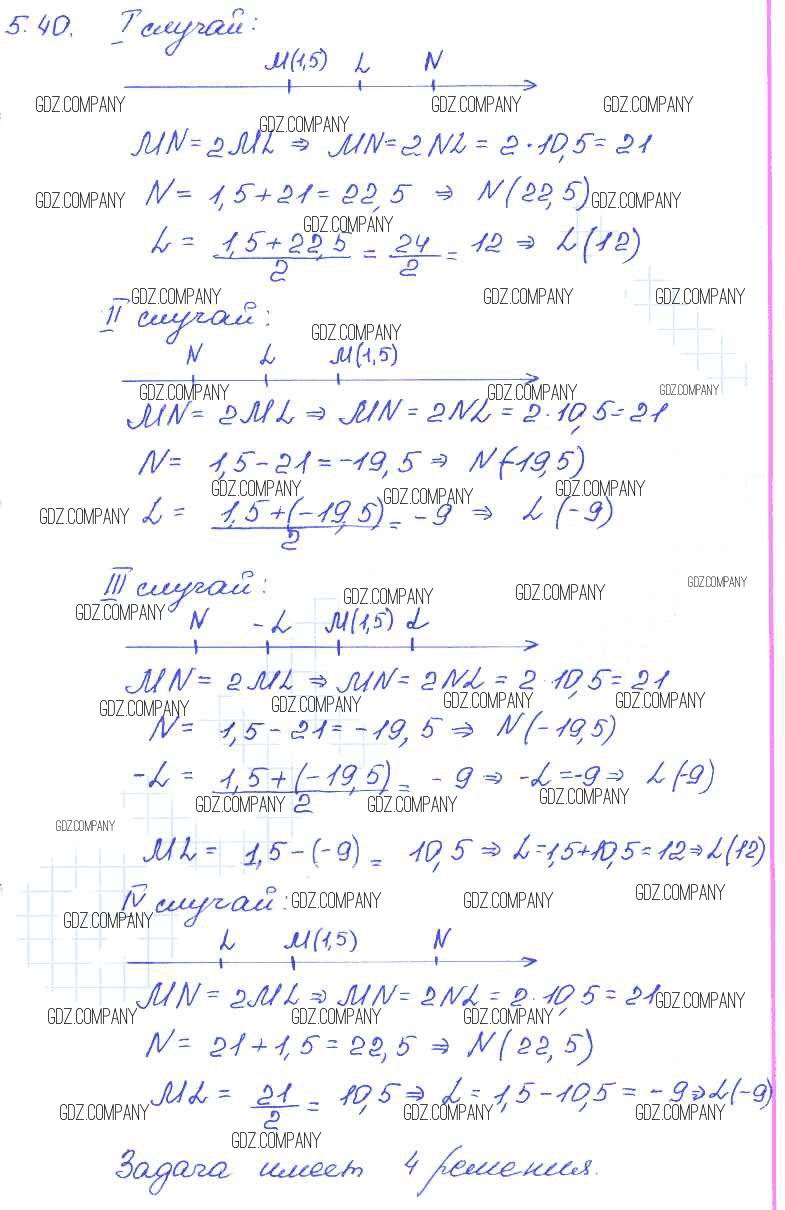 5.40. I случай:
M(1,5) L N
GDZ.COMPANY GDZ.COMPANY GDZ.COMPANY
GDZ.COMPANY
MN = 2ML ⇒ MN = 2NL = 2 · 10,5 = 21
GDZ.COMPANY N = 1,5 + 21 = 22,5 ⇒ N(22,5) GDZ.COMPANY
GDZ.COMPANY
L = (1,5 + 22,5)/2 = 24/2 = 12 ⇒ L(12)
GDZ.COMPANY GDZ.COMPANY GDZ.COMPANY
II случай: GDZ.COMPANY
N L M(1,5)
GDZ.COMPANY GDZ.COMPANY GDZ.COMPANY
MN = 2ML ⇒ MN = 2NL = 2 · 10,5 = 21
N = 1,5 - 21 = -19,5 ⇒ N(-19,5)
GDZ.COMPANY GDZ.COMPANY GDZ.COMPANY
GDZ.COMPANY L = (1,5 + (-19,5))/2 = -9 ⇒ L(-9)
III случай: GDZ.COMPANY GDZ.COMPANY GDZ.COMPANY
GDZ.COMPANY
N -L M(1,5) L
MN = 2ML ⇒ MN = 2NL = 2 · 10,5 = 21
GDZ.COMPANY GDZ.COMPANY GDZ.COMPANY GDZ.COMPANY
N = 1,5 - 21 = -19,5 ⇒ N(-19,5)
-L = (1,5 + (-19,5))/2 = -9 ⇒ -L = -9 ⇒ L(-9)
GDZ.COMPANY GDZ.COMPANY GDZ.COMPANY
GDZ.COMPANY
ML = 1,5 - (-9) = 10,5 ⇒ L = 1,5 + 10,5 = 12 ⇒ L(12)
IV случай: GDZ.COMPANY GDZ.COMPANY GDZ.COMPANY
GDZ.COMPANY
L M(1,5) N
MN = 2ML ⇒ MN = 2NL = 2 · 10,5 = 21 GDZ.COMPANY
GDZ.COMPANY GDZ.COMPANY GDZ.COMPANY
N = 21 + 1,5 = 22,5 ⇒ N(22,5)
ML = 21/2 = 10,5 ⇒ L = 1,5 - 10,5 = -9 ⇒ L(-9)
GDZ.COMPANY GDZ.COMPANY GDZ.COMPANY
GDZ.COMPANY
Задача имеет 4 решения.